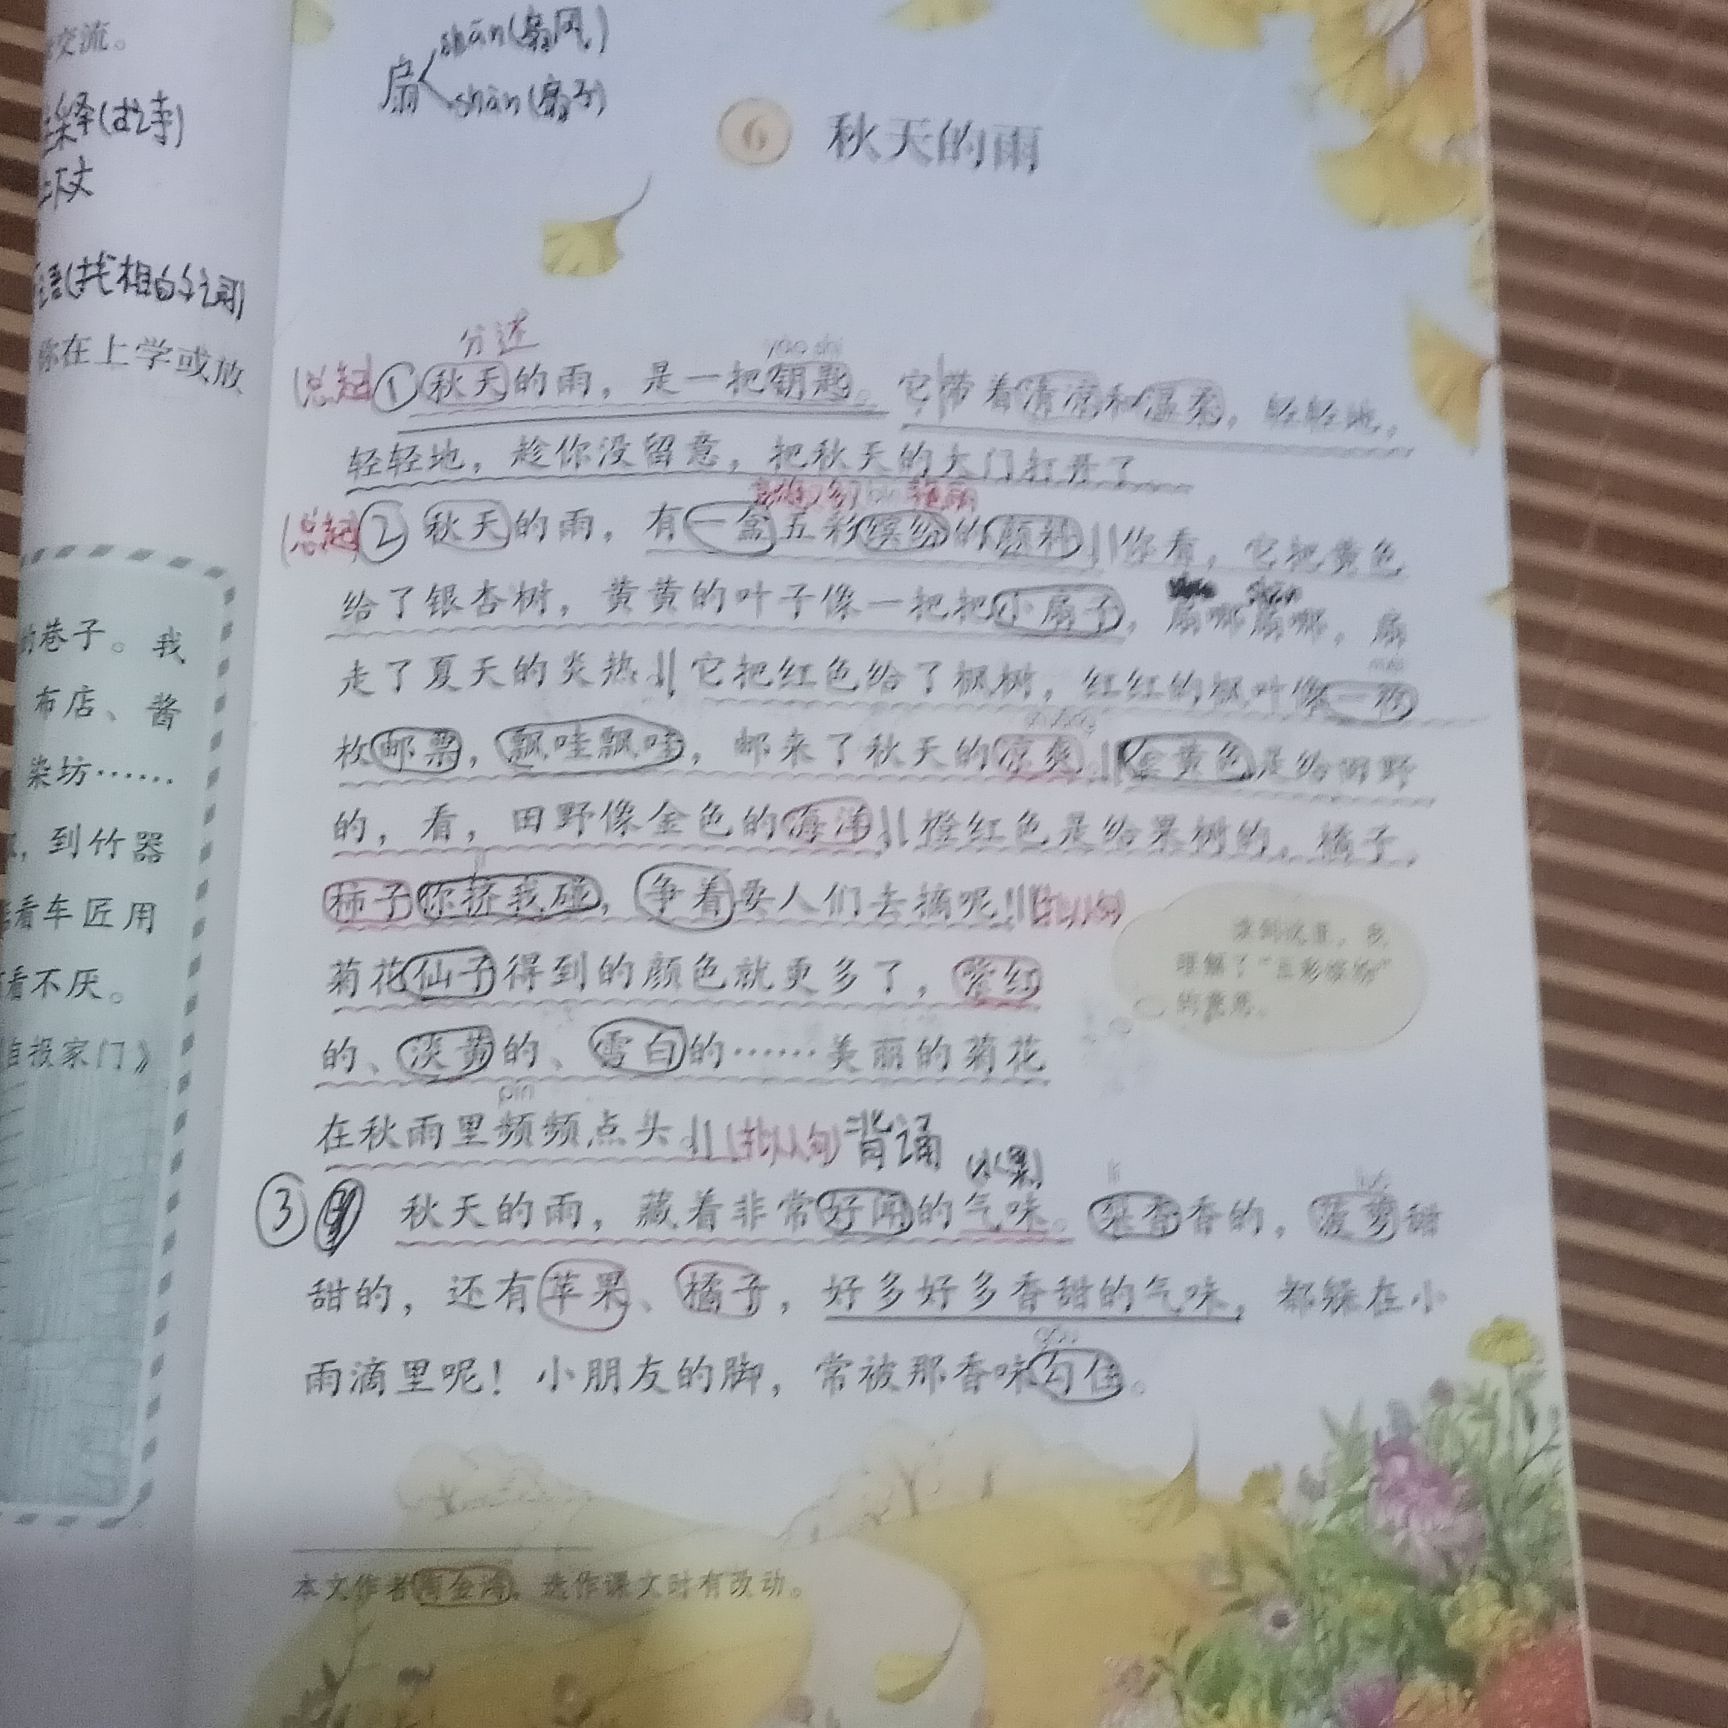 交流。
择(
你在上学或放
的巷子。我
布店、酱
染坊……
，到竹器
看车匠用
看不厌。
自报家门》
扇 shān(扇风)
shàn(扇子)
6 秋天的雨
(总起)① 秋天的雨，是一把钥匙。它带着清凉和温柔，轻轻地，
轻轻地，趁你没留意，把秋天的大门打开了。
(总起)② 秋天的雨，有一盒五彩缤纷的颜料。你看，它把黄色
给了银杏树，黄黄的叶子像一把把小扇子，扇哪扇哪，扇
走了夏天的炎热。它把红色给了枫树，红红的枫叶像一枚
枚邮票，飘哇飘哇，邮来了秋天的凉爽。金黄色是给田野
的，看，田野像金色的海洋。橙红色是给果树的，橘子、
柿子你挤我碰，争着要人们去摘呢！(拟人句)
菊花仙子得到的颜色就更多了，紫红
的、淡黄的、雪白的……美丽的菊花
pín
在秋雨里频频点头。(拟人句) 背诵
(水果)
③ 秋天的雨，藏着非常好闻的气味。梨香香的，菠萝甜
甜的，还有苹果、橘子，好多好多香甜的气味，都躲在小
gōu
雨滴里呢！小朋友的脚，常被那香味勾住。
读到这里，我
理解了“五彩缤纷”
的意思。
本文作者陶金鸿，选作课文时有改动。